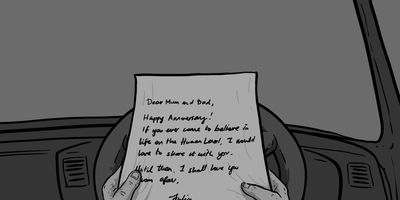 Dear Mum and Dad,
Happy Anniversary!
If you ever come to believe in
life on the Human Level, I would
love to share it with you.
Until then, I shall love you
from afar,
Julia